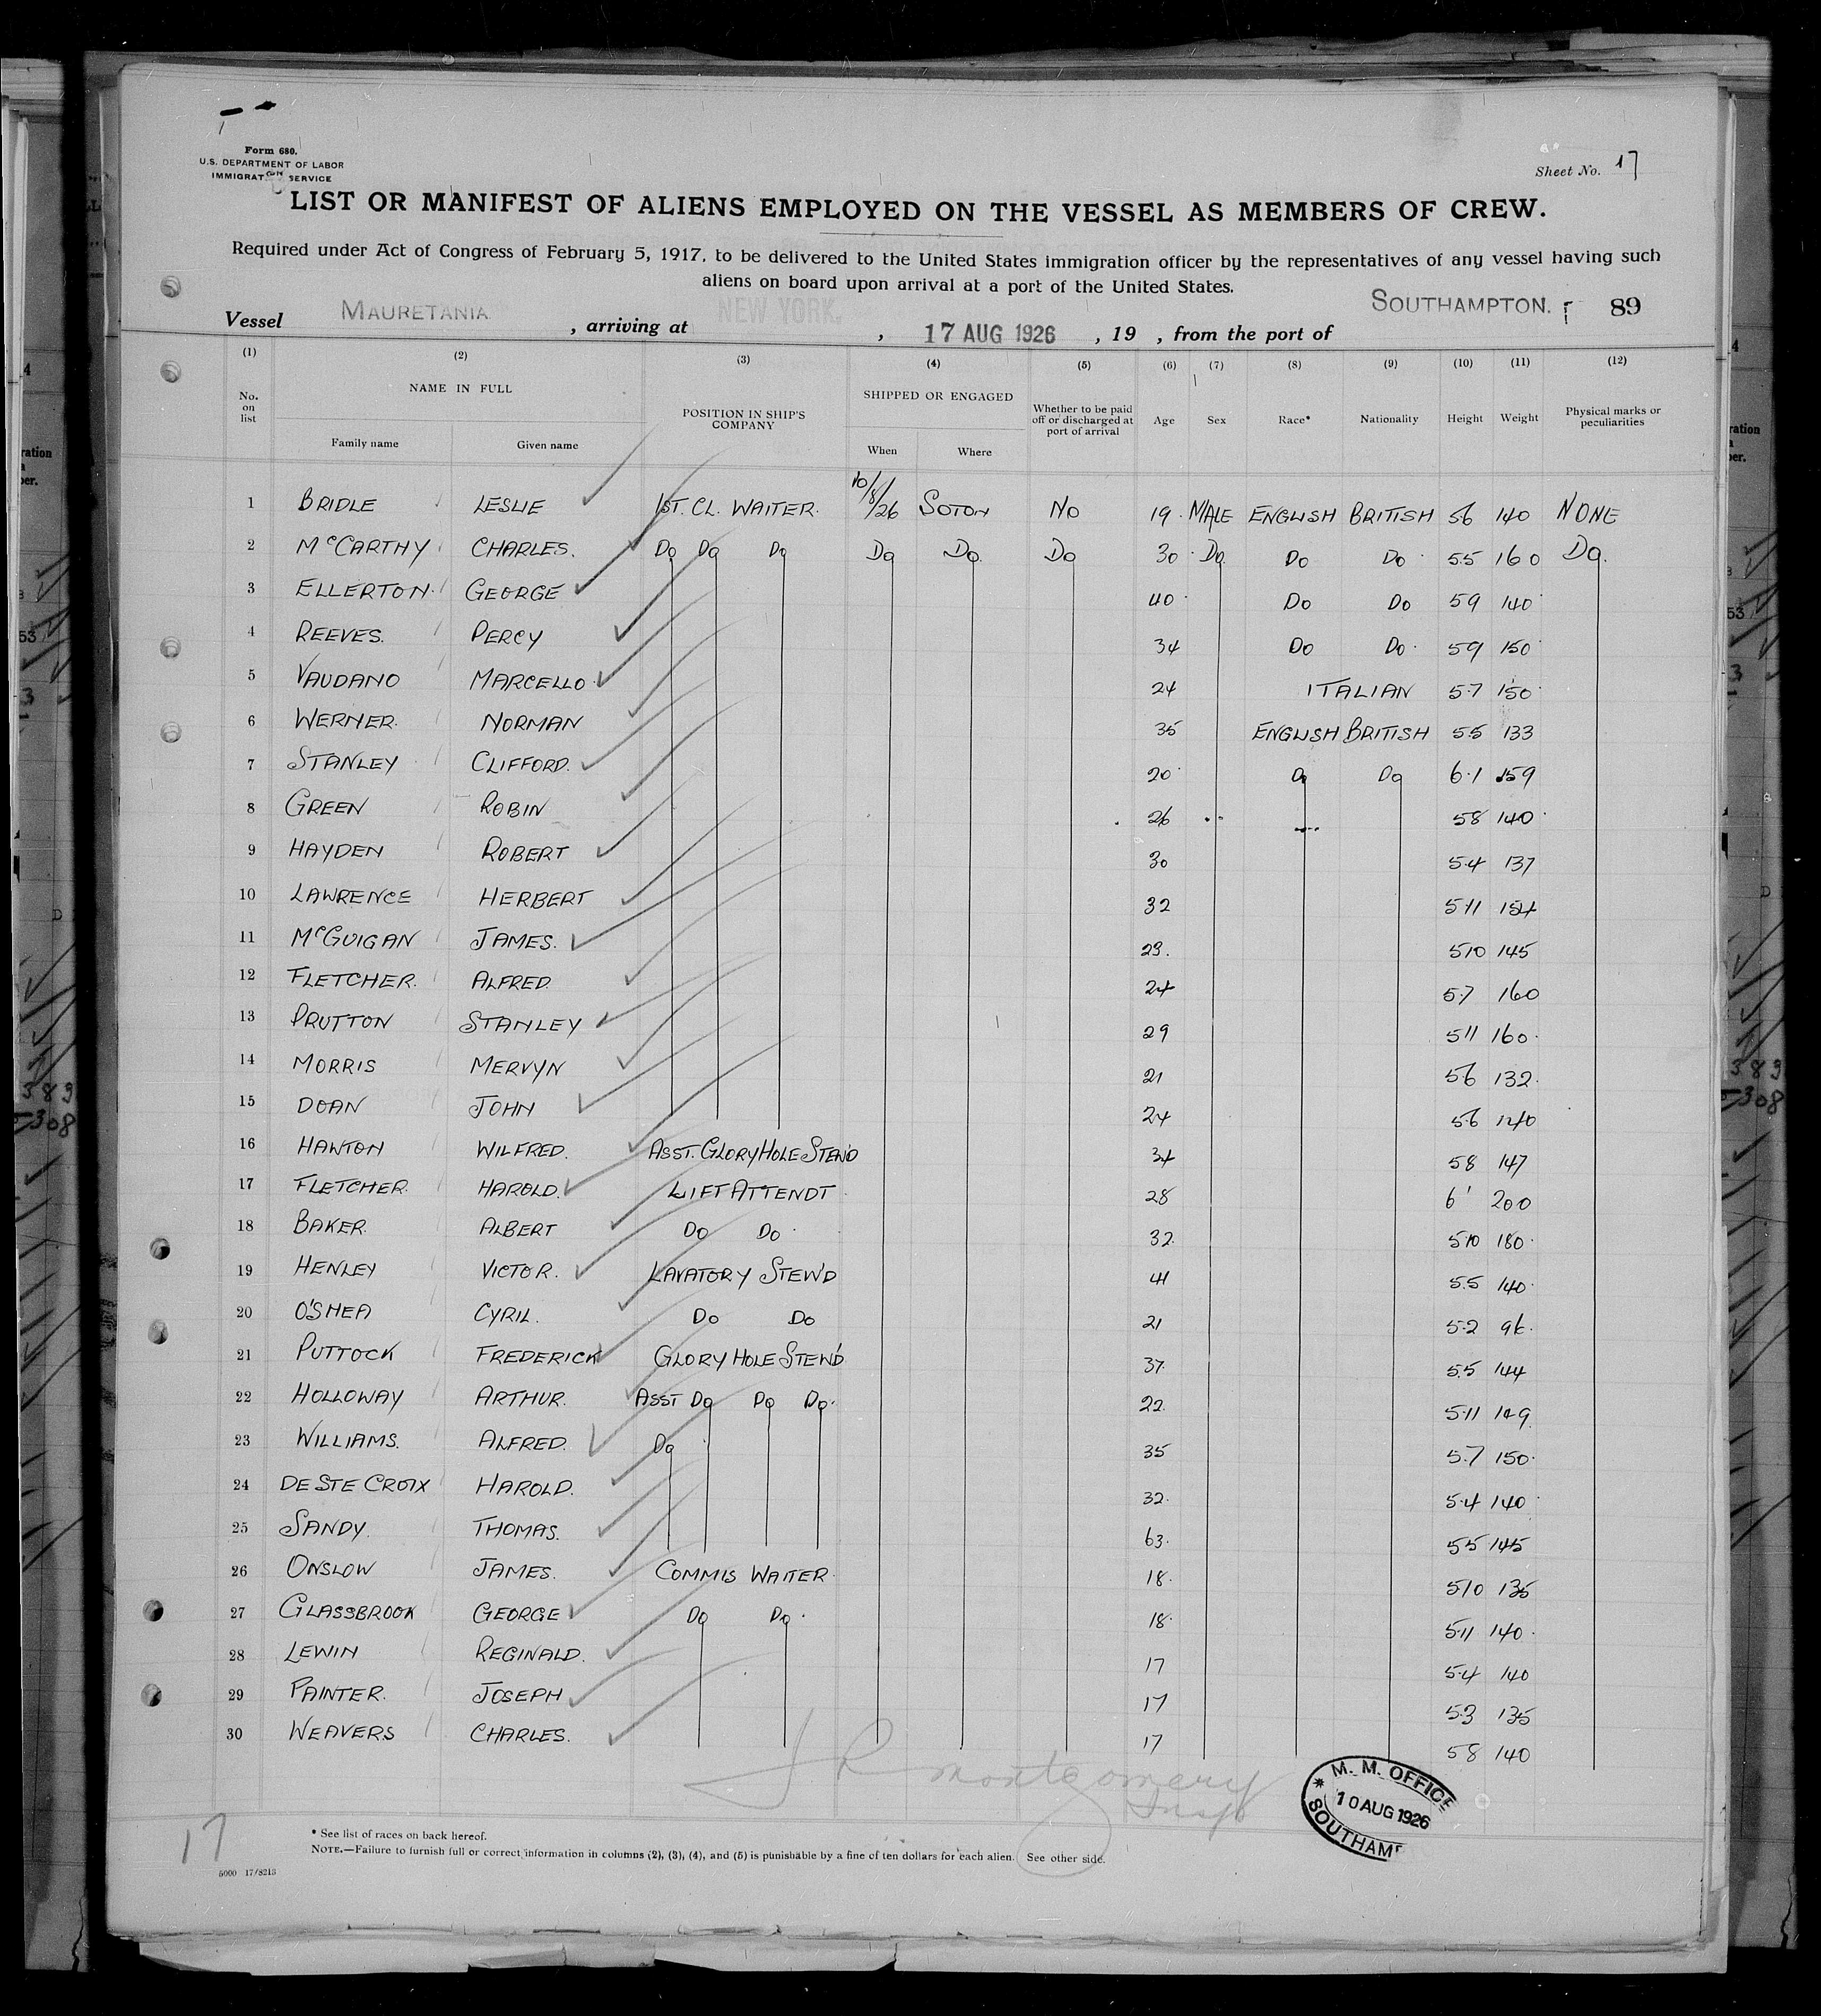 Form 680.
U.S. DEPARTMENT OF LABOR
IMMIGRATION SERVICE
Sheet No. 17
LIST OR MANIFEST OF ALIENS EMPLOYED ON THE VESSEL AS MEMBERS OF CREW.
Required under Act of Congress of February 5, 1917, to be delivered to the United States immigration officer by the representatives of any vessel having such
aliens on board upon arrival at a port of the United States.
Vessel MAURETANIA, arriving at NEW YORK, 17 AUG 1926, 19 , from the port of SOUTHAMPTON. 89
(1) (2) (3) (4) (5) (6) (7) (8) (9) (10) (11) (12)
No. on list NAME IN FULL Family name Given name POSITION IN SHIP'S COMPANY SHIPPED OR ENGAGED When Where Whether to be paid off or discharged at port of arrival Age Sex Race* Nationality Height Weight Physical marks or peculiarities
1 BRIDLE LESLIE 1ST. CL. WAITER. 10/8/26 SOTON NO 19 MALE ENGLISH BRITISH 56 140 NONE
2 McCARTHY CHARLES. Do Do Do Do Do. Do 30 Do Do Do 5.5 160 Do.
3 ELLERTON GEORGE 40 Do Do 59 140
4 REEVES. PERCY 34 Do Do 59 150
5 VAUDANO MARCELLO 24 ITALIAN 5.7 150
6 WERNER. NORMAN 35 ENGLISH BRITISH 5.5 133
7 STANLEY CLIFFORD. 20 Do Do 6.1 159
8 GREEN ROBIN 26 58 140
9 HAYDEN ROBERT 30 5.4 137
10 LAWRENCE HERBERT 32 5.11 154
11 McGUIGAN JAMES. 23. 510 145
12 FLETCHER. ALFRED. 24 5.7 160
13 PRUTTON STANLEY 29 511 160
14 MORRIS MERVYN 21 56 132
15 DOAN JOHN 24 5.6 140
16 HAWTON WILFRED. ASST. GLORY HOLE STEW'D 34 58 147
17 FLETCHER. HAROLD. LIFT ATTENDT 28 6' 200
18 BAKER. ALBERT Do Do 32. 510 180
19 HENLEY VICTOR. LAVATORY STEW'D 41 5.5 140
20 O'SHEA CYRIL. Do Do 21 5.2 96.
21 PUTTOCK FREDERICK GLORY HOLE STEW'D 37. 5.5 144
22 HOLLOWAY ARTHUR. ASST Do Do Do. 22. 5.11 149
23 WILLIAMS. ALFRED. Do 35 5.7 150
24 DE STE CROIX HAROLD. 32. 5.4 140
25 SANDY. THOMAS. 63. 55 145
26 ONSLOW JAMES. COMMIS WAITER. 18. 510 135
27 GLASSBROOK GEORGE Do Do. 18. 5.11 140
28 LEWIN REGINALD. 17 5.4 140
29 PAINTER. JOSEPH 17 5.3 135
30 WEAVERS CHARLES. 17 58 140
J R Montgomery
Insp
M. M. OFFICE
10 AUG 1926
17
* See list of races on back hereof.
NOTE.—Failure to furnish full or correct information in columns (2), (3), (4), and (5) is punishable by a fine of ten dollars for each alien. See other side.
5000 17/8213